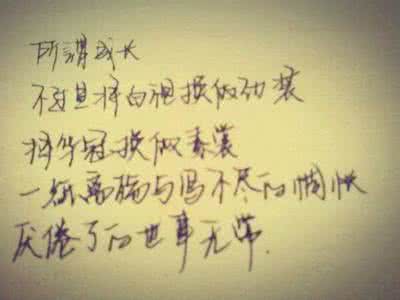 所謂成长
不过是将白袍换做劲装
将华冠换做素裳
一纸离殇写不尽的惆怅
厌倦了的世事无常.